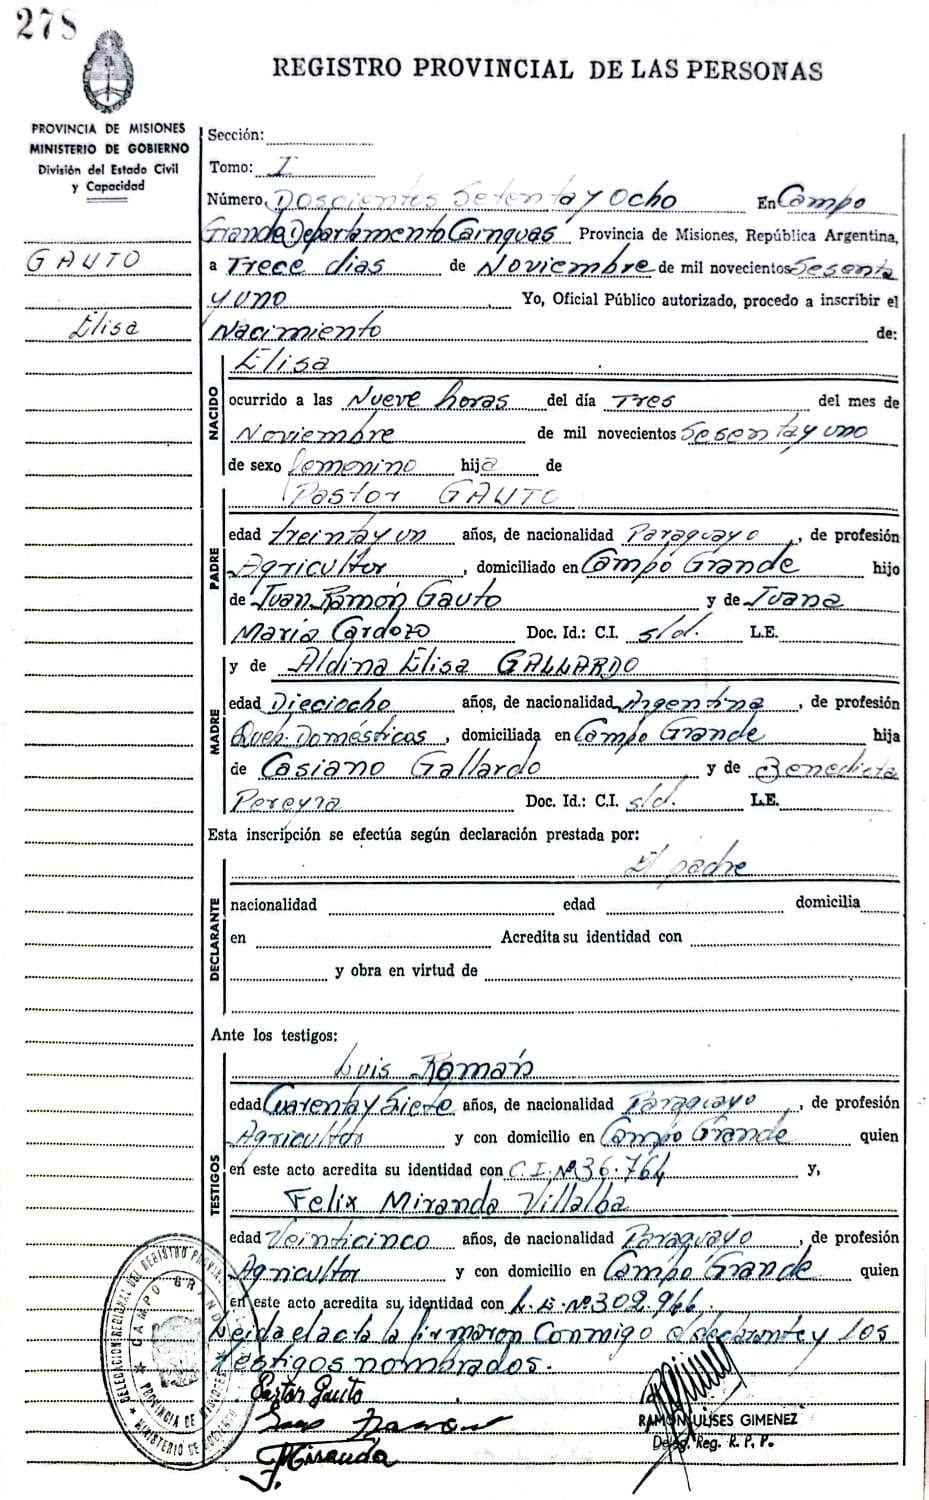 278
REGISTRO PROVINCIAL DE LAS PERSONAS
PROVINCIA DE MISIONES
MINISTERIO DE GOBIERNO
División del Estado Civil
y Capacidad
GAUTO
Elisa
Sección:
Tomo: I
Número Doscientos Setenta y Ocho En Campo
Grande Departamento Cainguas Provincia de Misiones, República Argentina,
a Trece días de Noviembre de mil novecientos Sesenta
y uno Yo, Oficial Público autorizado, procedo a inscribir el
Nacimiento de:
NACIDO
Elisa
ocurrido a las Nueve horas del día Tres del mes de
Noviembre de mil novecientos Sesenta y uno
de sexo femenino hija de
Pastor GAUTO
PADRE
edad treinta y un años, de nacionalidad Paraguayo, de profesión
Agricultor, domiciliado en Campo Grande hijo
de Juan Ramón Gauto y de Juana
María Cardozo Doc. Id.: C.I. s/d. L.E.
y de Aldina Elisa GALLARDO
MADRE
edad Dieciocho años, de nacionalidad Argentina, de profesión
Queh. Domésticos, domiciliada en Campo Grande hija
de Casiano Gallardo y de Benedicta
Pereyra Doc. Id.: C.I. s/d. L.E.
Esta inscripción se efectúa según declaración prestada por:
El padre
DECLARANTE
nacionalidad edad domicilia
en Acredita su identidad con
y obra en virtud de
Ante los testigos:
Luis Román
TESTIGOS
edad Cuarenta y Siete años, de nacionalidad Paraguayo, de profesión
Agricultor y con domicilio en Campo Grande quien
en este acto acredita su identidad con C.I. Nº 36.764 y,
Felix Miranda Villalba
edad Veinticinco años, de nacionalidad Paraguayo, de profesión
Agricultor y con domicilio en Campo Grande quien
en este acto acredita su identidad con L.E. Nº 302.966.
Leida el acta la firmaron conmigo el declarante y los
testigos nombrados.
Pastor Gauto
Miranda
RAMON ULISES GIMENEZ
Deleg. Reg. R. P. P.
DELEGACION REGIONAL DEL REGISTRO PROVINCIAL
CAMPO GRANDE
PROVINCIA DE MISIONES
MINISTERIO DE GOBIERNO